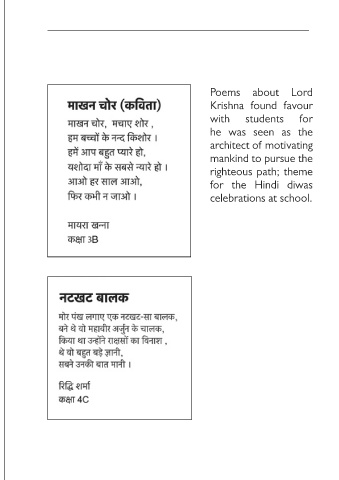 माखन चोर (कविता)
माखन चोर, मचाए शोर ,
हम बच्चों के नन्द किशोर ।
हमें आप बहुत प्यारे हो,
यशोदा माँ के सबसे न्यारे हो ।
आओ हर साल आओ,
फिर कभी न जाओ ।
मायरा खन्ना
कक्षा 3B
Poems about Lord
Krishna found favour
with students for
he was seen as the
architect of motivating
mankind to pursue the
righteous path; theme
for the Hindi diwas
celebrations at school.
नटखट बालक
मोर पंख लगाए एक नटखट-सा बालक,
बने थे वो महावीर अर्जुन के चालक,
किया था उन्होंने राक्षसों का विनाश ,
थे वो बहुत बड़े ज्ञानी,
सबने उनकी बात मानी ।
रिद्धि शर्मा
कक्षा 4C